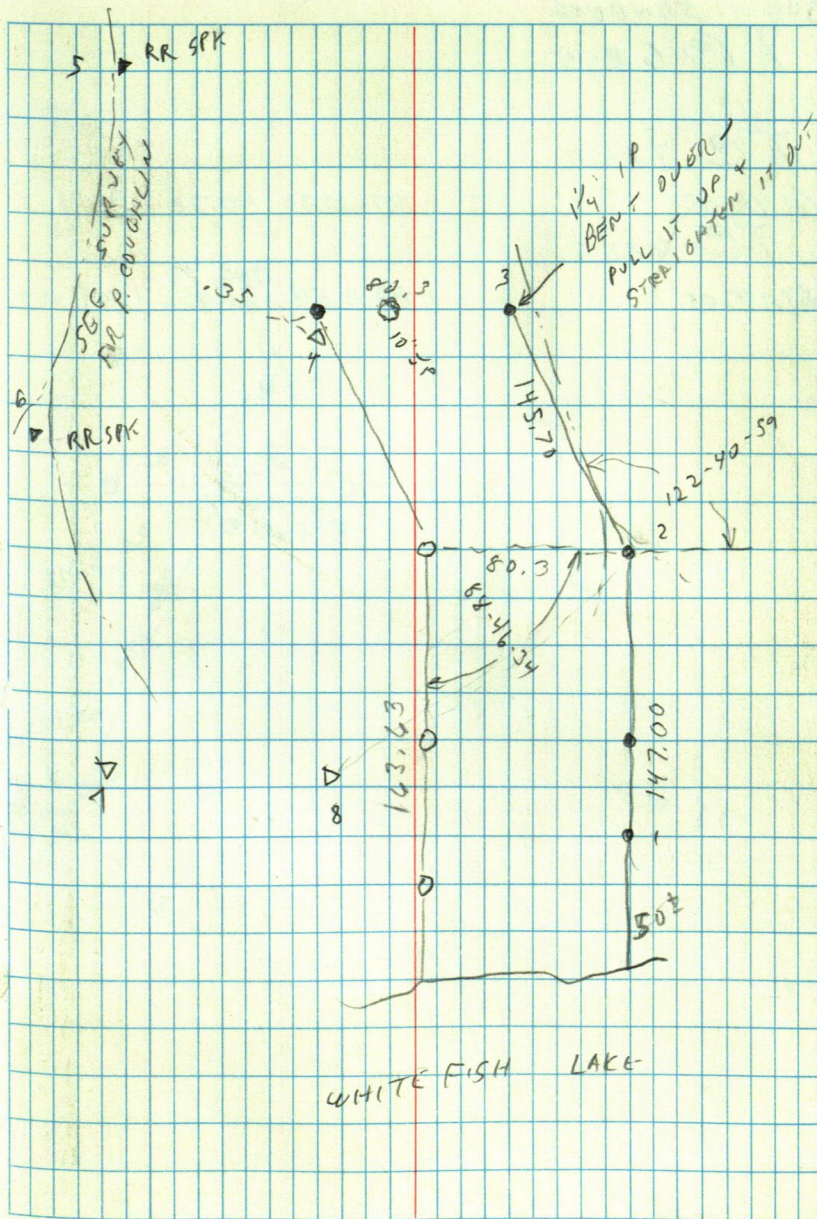 5 RR SPK
SEE SURVEY
FOR P. COUGHLIN
1 1/4" IP
BENT OVER
PULL IT UP &
STRAIGHTEN IT OUT
3
.35
80.3
4
6
RR SPK
145.70
122-40-59
2
80.3
88-46-34
163.63
147.00
7
8
1
50±
WHITE FISH LAKE